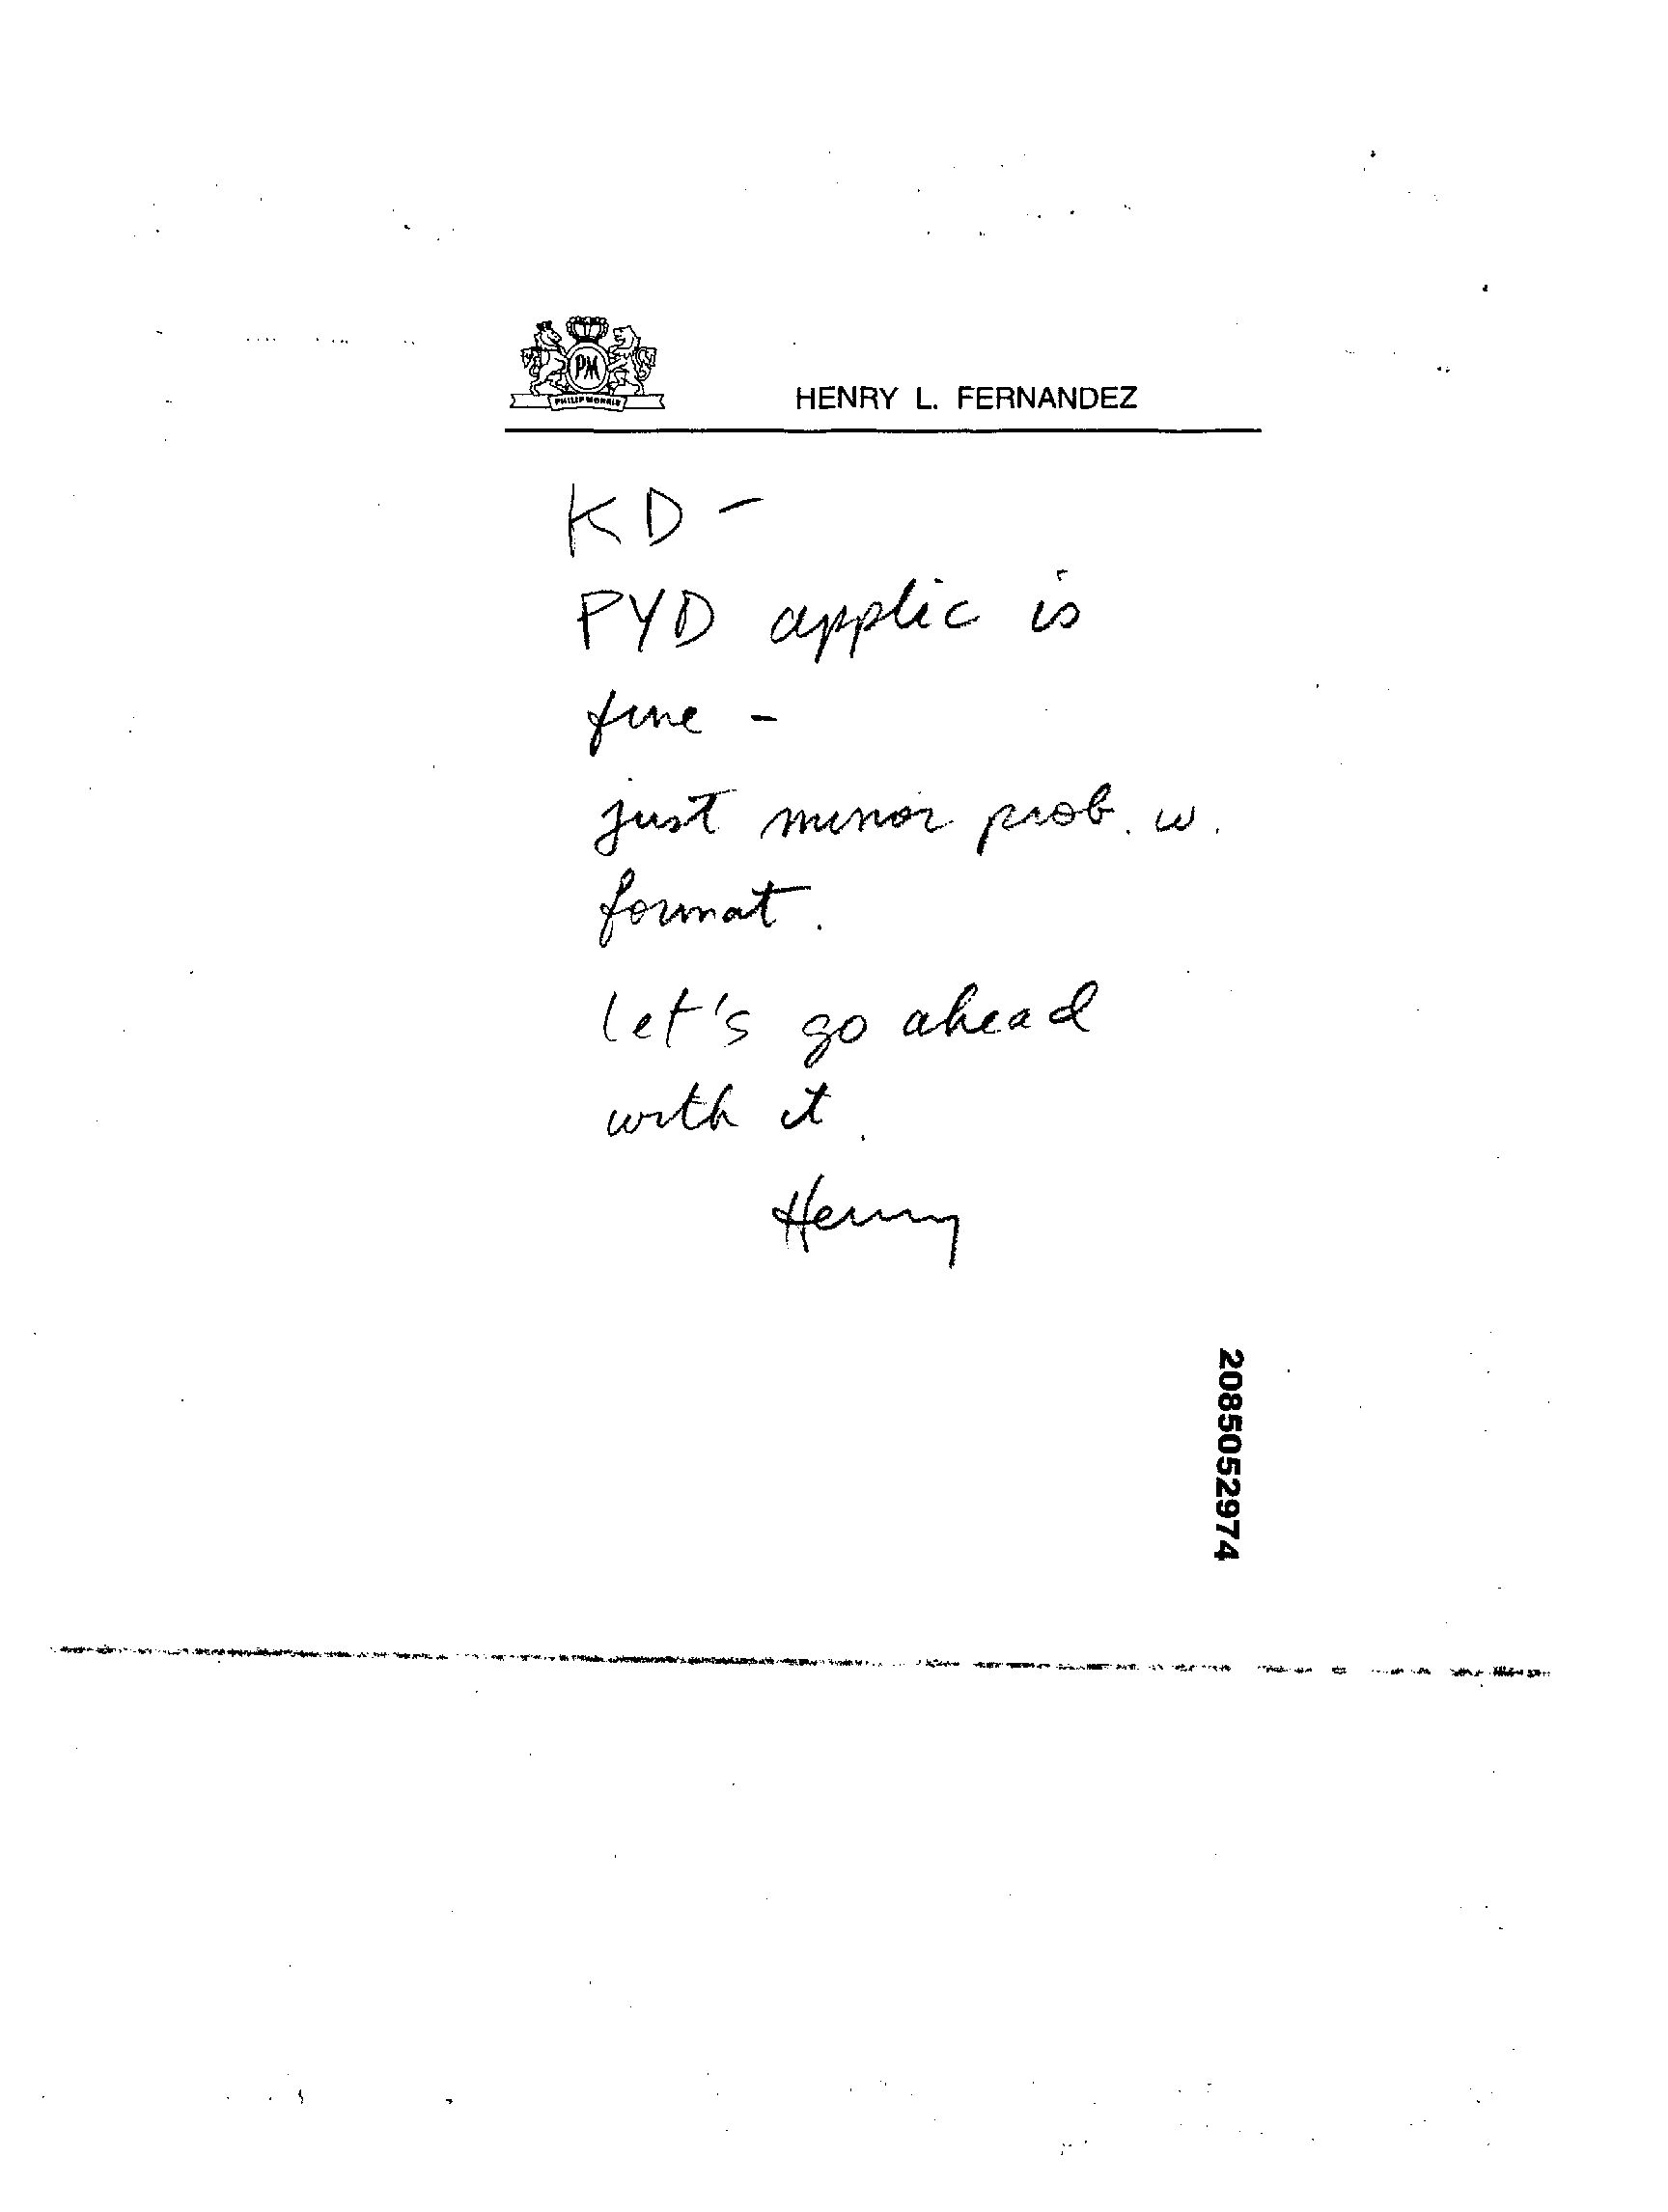 PM
PHILIP MORRIS
HENRY L. FERNANDEZ
KD -
PYD applic is
fine -
just minor prob. w.
format.
let's go ahead
with it.
Henry
2085052974